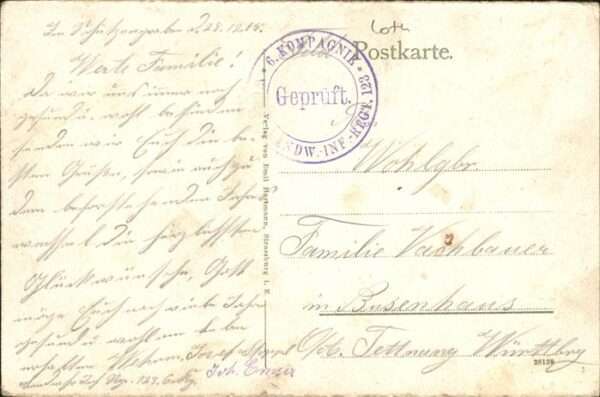 Im Schützengraben d. 28.12.15.
Werte Familie!
Da wir uns immer noch
gesund u. wohl befinden
senden wir Euch die be-
sten Grüße, sowie auch zu
dem bevorstehenden Jahres
wechsel die herzlichsten
Glückwünsche, Gott
möge Euch noch viele Jahre
gesund u. wohl am Leben
erhalten Josef
Landw. Inf. Reg. 123. 6. Kp.
Joh.
Postkarte.
6. KOMPAGNIE * LANDW.-INF.-REGT. 123 *
Geprüft.
Verlag von Emil Hartmann, Strassburg i. E.
Wohlgbr.
Familie Vachbauer
in Busenhaus
O/A. Tettnang Württbg
28128